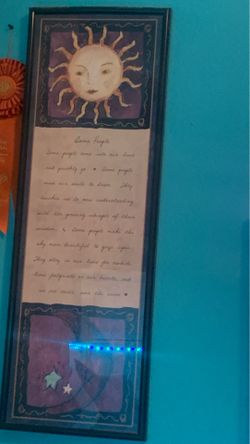 Some People
Some people come into our lives
and quickly go • Some people
move our souls to dance • They
awaken us to new understanding
with the passing whisper of their
wisdom • Some people make the
sky more beautiful to gaze upon •
They stay in our lives for awhile
leave footprints on our hearts, and
we are never, ever the same •